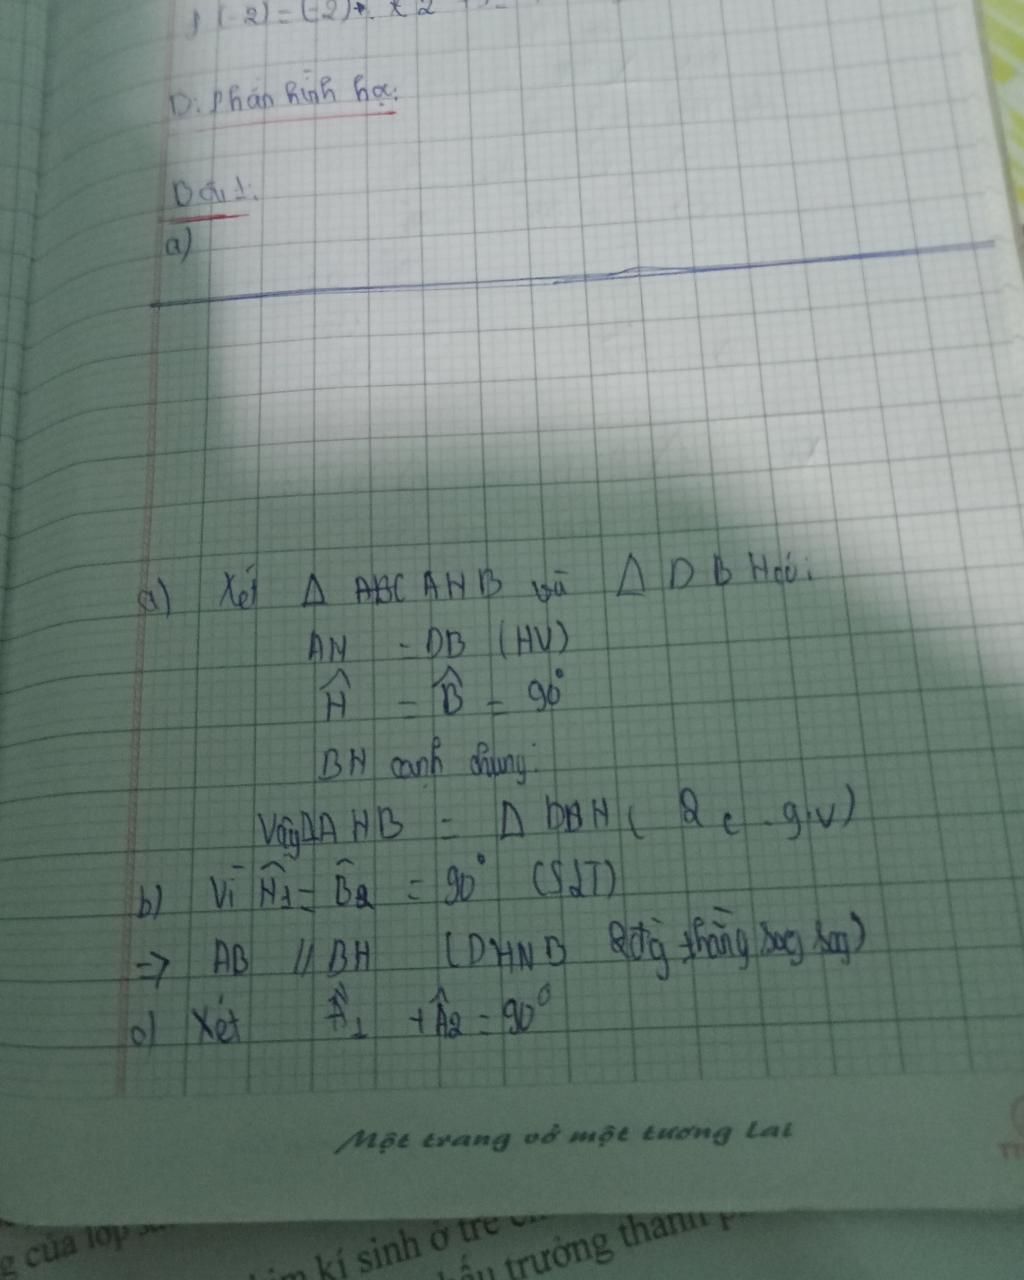 (-2) = (-2)
D. Phần hình học.
Bài 1.
a)
a) Xét Δ ABC AHB và Δ DBH có:
AH = DB (HV)
Ĥ = B̂ = 90°
BH cạnh chung.
Vậy ΔAHB = Δ DBH ( 2 c . g . v)
b) Vì Ĥ1 = B̂2 = 90° (SLT)
=> AB // BH (DHNB 2 đg thẳng sog sog)
c) Xét Â1 + Â2 = 90°
Một trang vở một tương lai
của lớp
kí sinh ở trẻ
trường thành